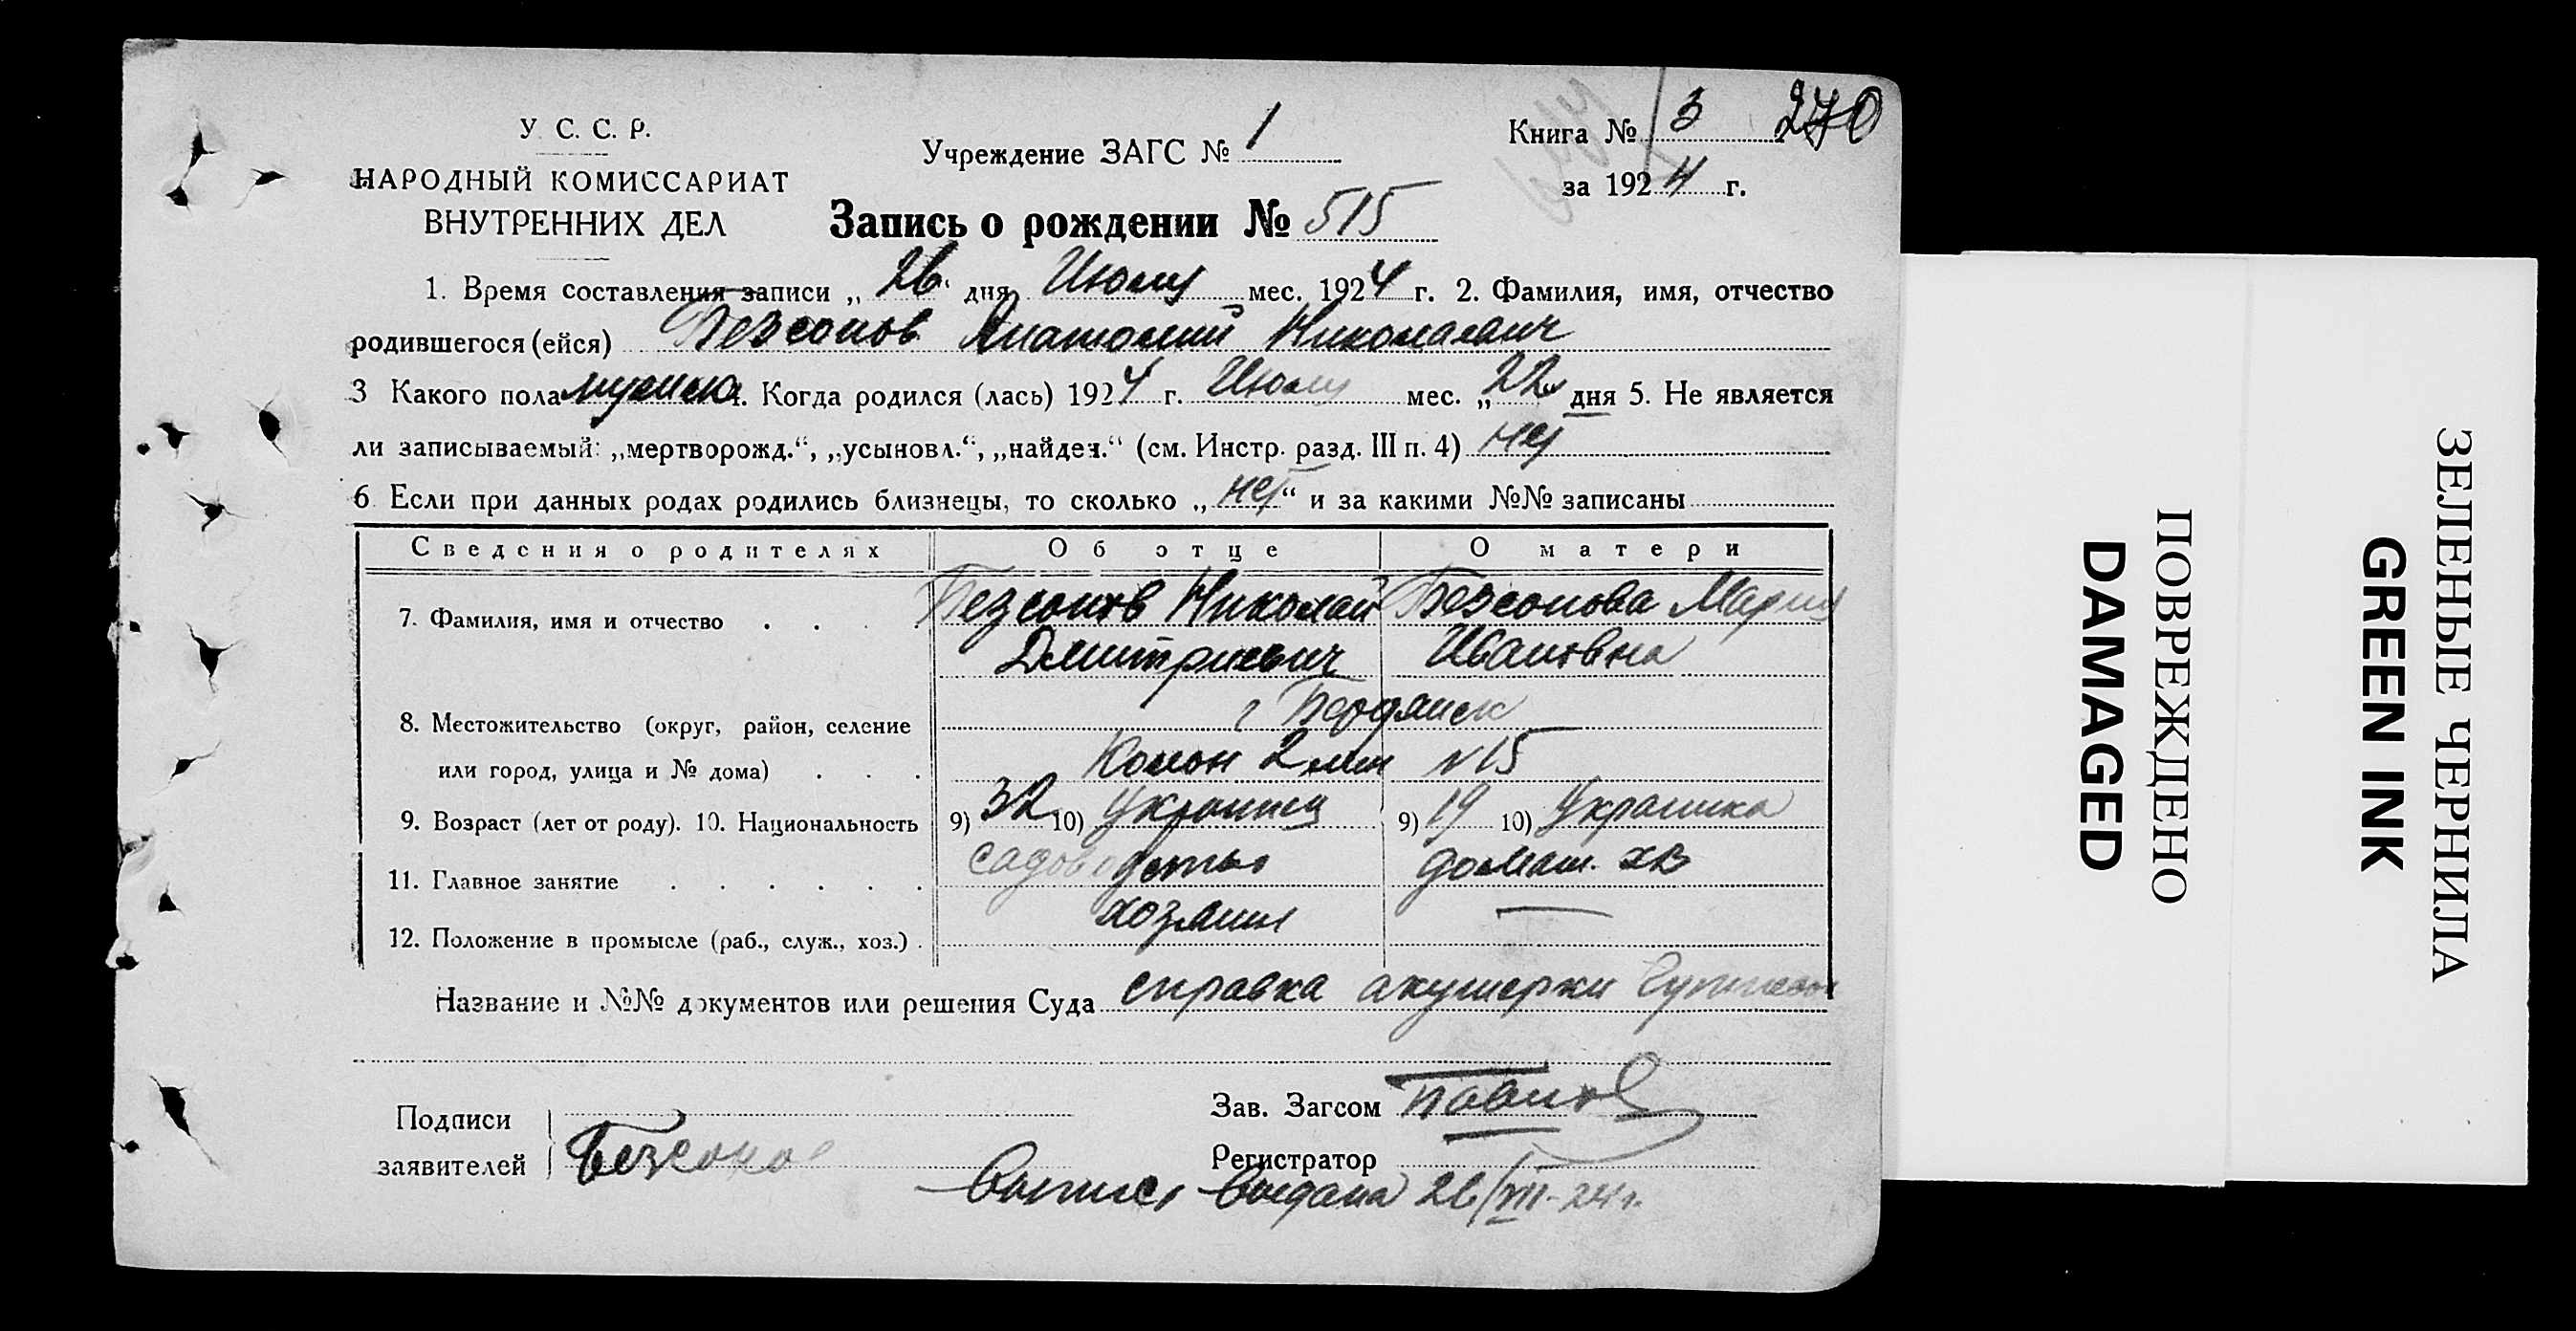 У. С. С. Р.
НАРОДНЫЙ КОМИССАРИАТ
ВНУТРЕННИХ ДЕЛ
Учреждение ЗАГС № 1
Книга № 3 270
за 1924 г.
Запись о рождении № 515
1. Время составления записи „26“ дня Июля мес. 1924 г. 2. Фамилия, имя, отчество
родившегося (ейся) Безсонов Анатолий Николаевич
3 Какого пола мужско 4. Когда родился (лась) 1924 г. Июля мес. „22“ дня 5. Не является
ли записываемый: „мертворожд.“, „усыновл.“, „найден.“ (см. Инстр. разд. III п. 4) нет
6 Если при данных родах родились близнецы, то сколько „нет“ и за какими №№ записаны
Сведения о родителях Об отце О матери
7. Фамилия, имя и отчество . . . . Безсонов Николай Безсонова Мария
Дмитриевич Ивановна
8. Местожительство (округ, район, селение г Бердянск
или город, улица и № дома) . . . Колон 2 лин №15
9. Возраст (лет от роду). 10. Национальность 9) 32 10) Украинец 9) 19 10) Украинка
11. Главное занятие . . . . . . садоводство домаш. хв
12. Положение в промысле (раб., служ., хоз.) . хозяин —
Название и №№ документов или решения Суда справка акушерки
Подписи
заявителей Безсонов
Зав. Загсом
Регистратор
Выпись выдана 26/VII-24 г.
ПОВРЕЖДЕНО
DAMAGED
ЗЕЛЕНЫЕ ЧЕРНИЛА
GREEN INK